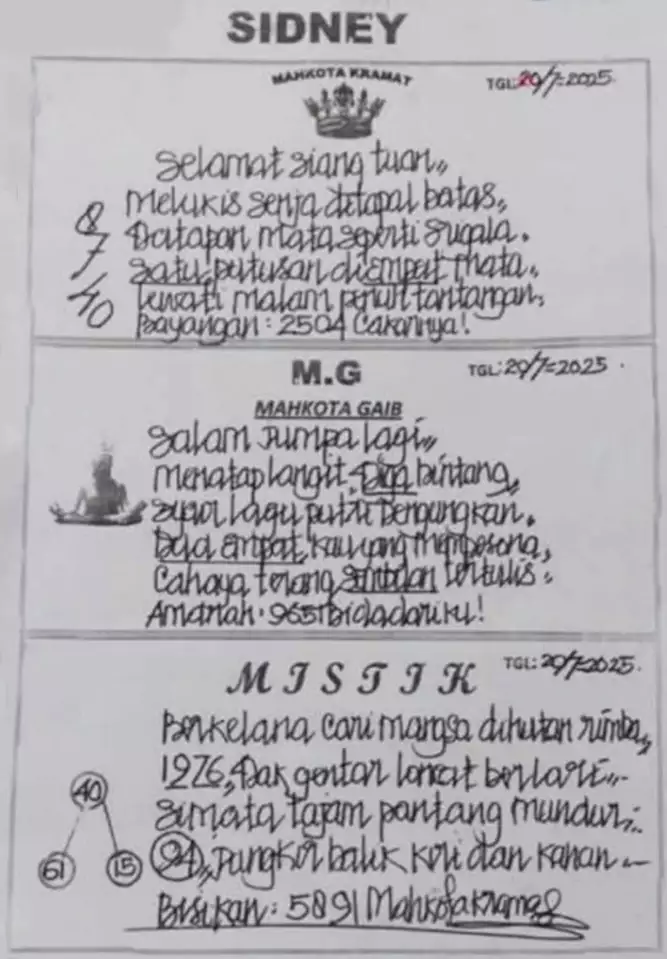 SIDNEY
MAHKOTA KRAMAT
TGL: 20/7=2025.
Selamat siang tuan,,
Melukis senja ditapal batas,,
8
mata seperti
7
Satu putusan diempat mata.
40
Lewati malam penuh tantangan,
Bayangan: 2504 Cakarnya!
M.G
TGL: 20/7=2025
MAHKOTA GAIB
Salam jumpa lagi,,
Menatap langit, bintang,,
Syair lagu putri
Dua empat, kau yang mempesona,
Cahaya terang sembilan tertulis.
Amanah. 9651 bidadariku!
MISTIK
TGL: 20/7=2025.
Berkelana cari mangsa dihutan rimba,,
1276, gentar loncat berlari,,
40
Simata tajam pantang mundur,
61
15
94,, balik kiri dan kanan
Bisikan: 5891 Mahkota kramat